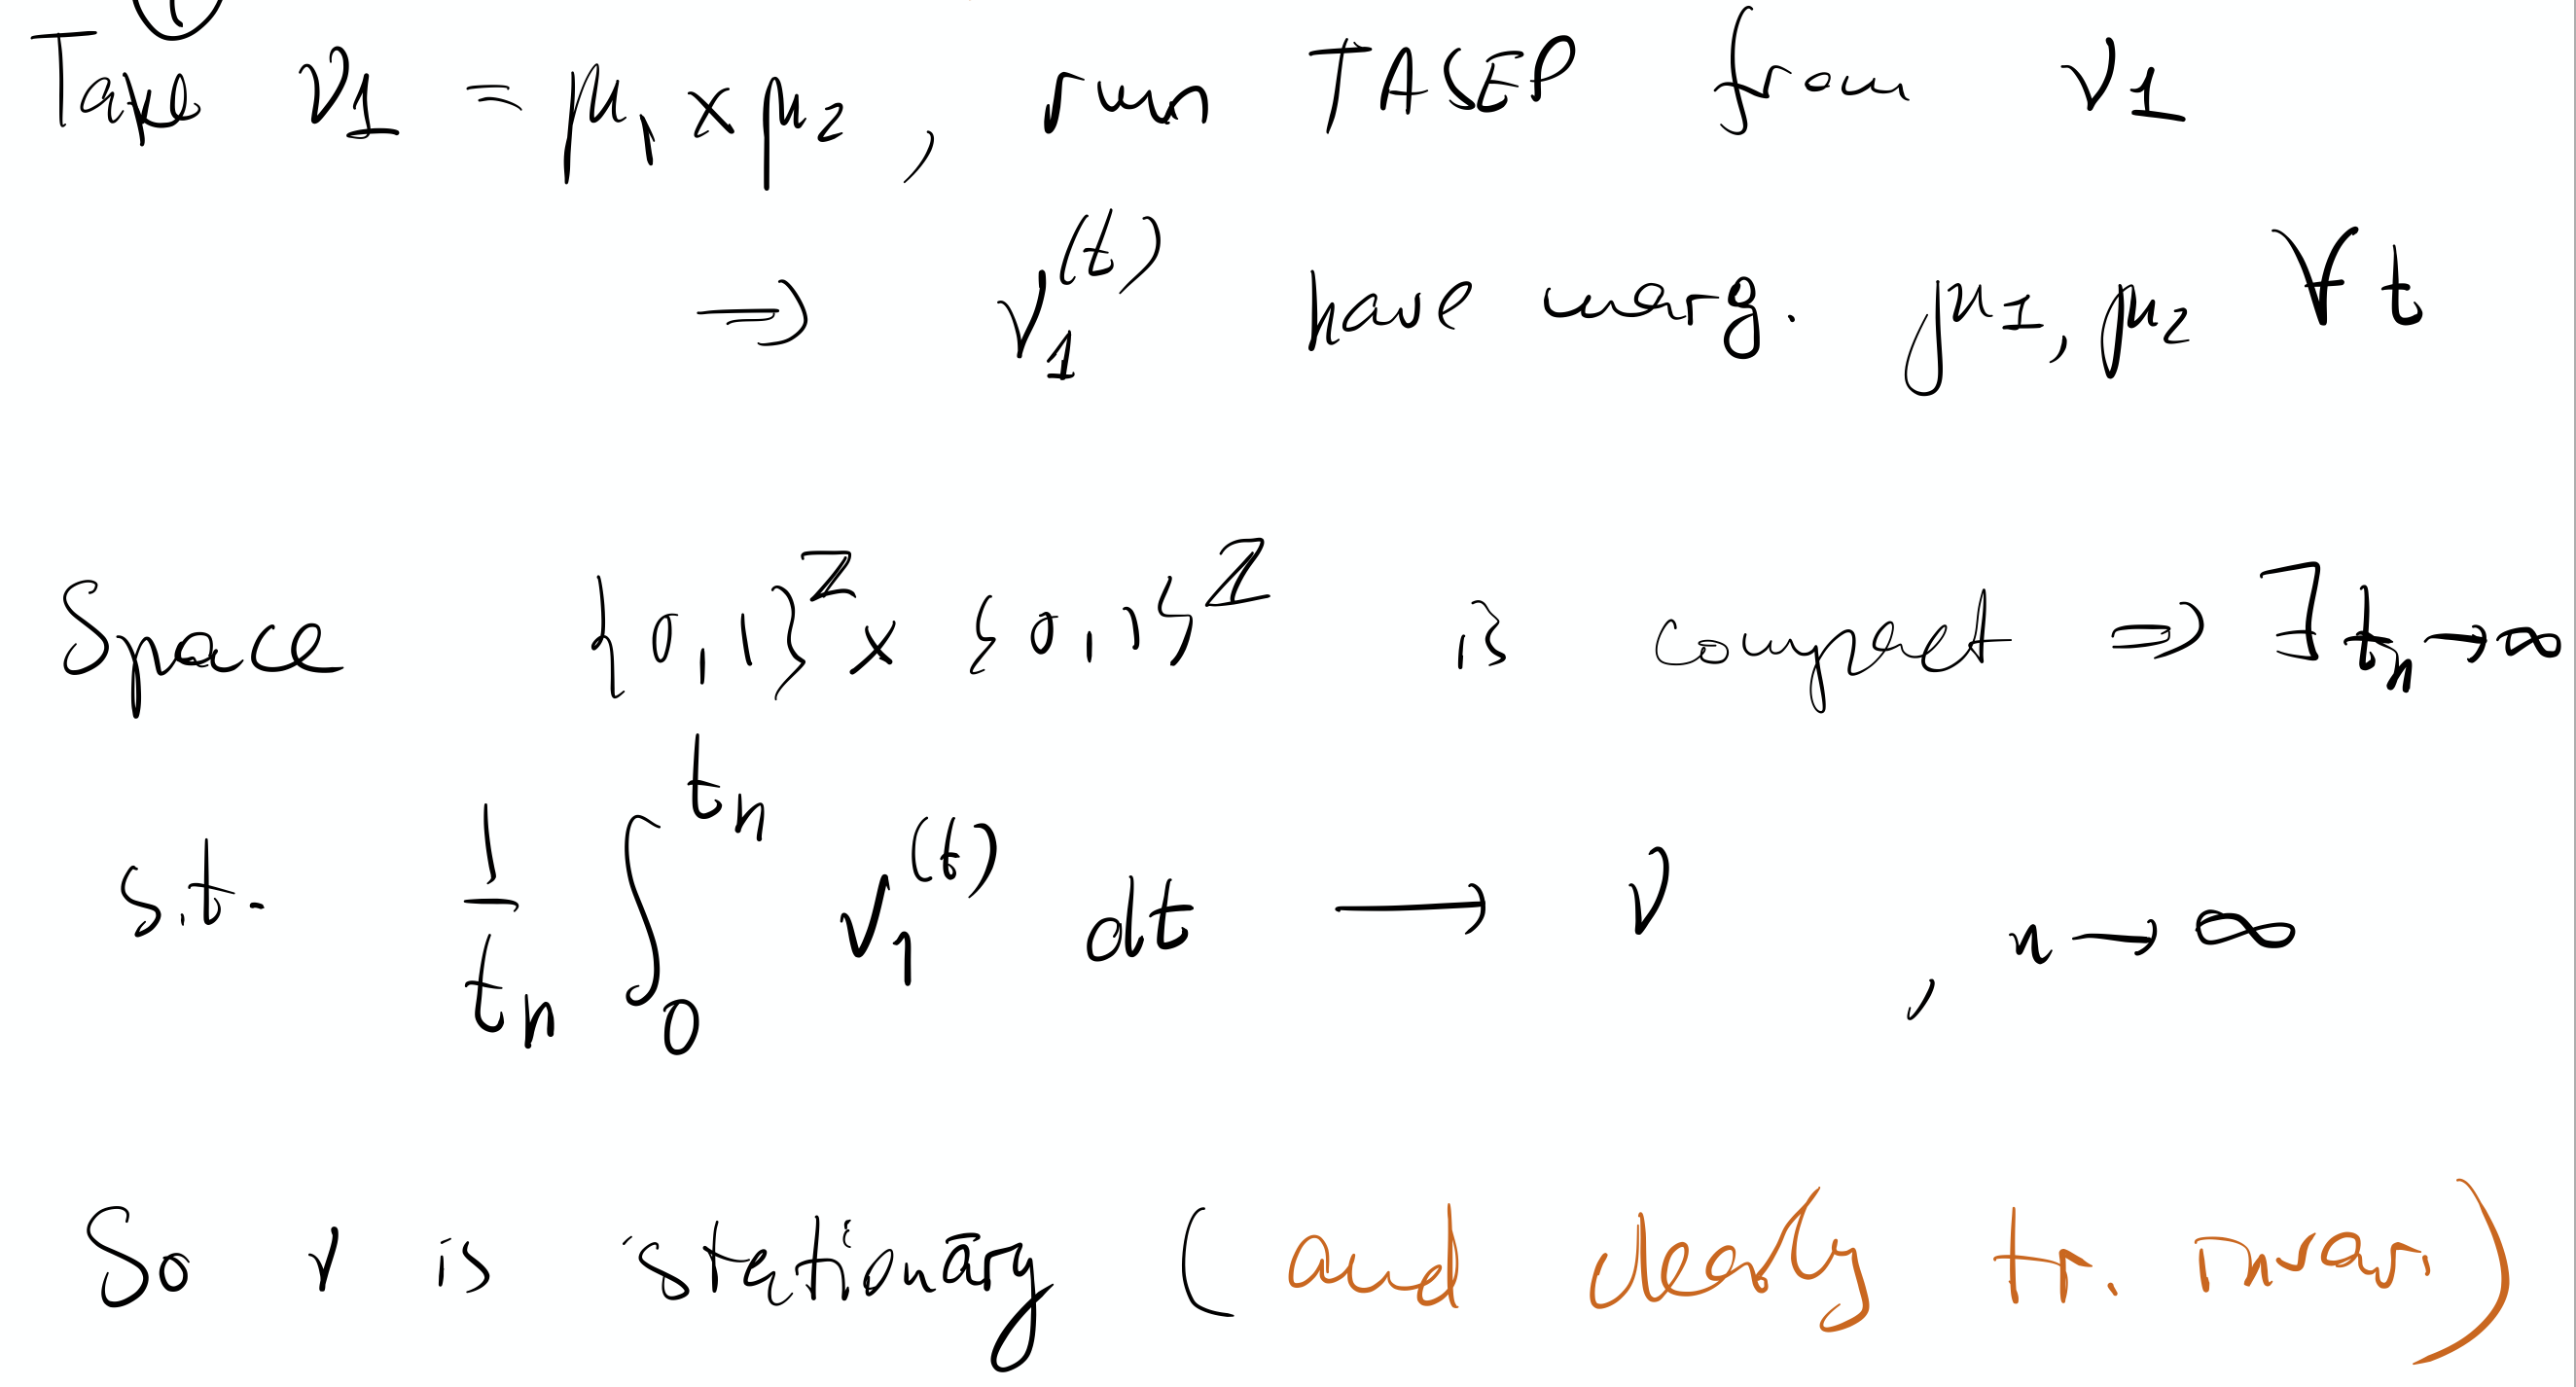 Take ν₁ = μ₁ × μ₂ , run TASEP from ν₁
⇒ ν₁⁽ᵗ⁾ have marg. μ₁, μ₂ ∀ t
Space {0,1}^ℤ × {0,1}^ℤ is compact ⇒ ∃ tₙ → ∞
s.t. 1/tₙ ∫₀^{tₙ} ν₁⁽ᵗ⁾ dt ⟶ ν , n → ∞
So ν is stationary (and clearly tr. invar.)